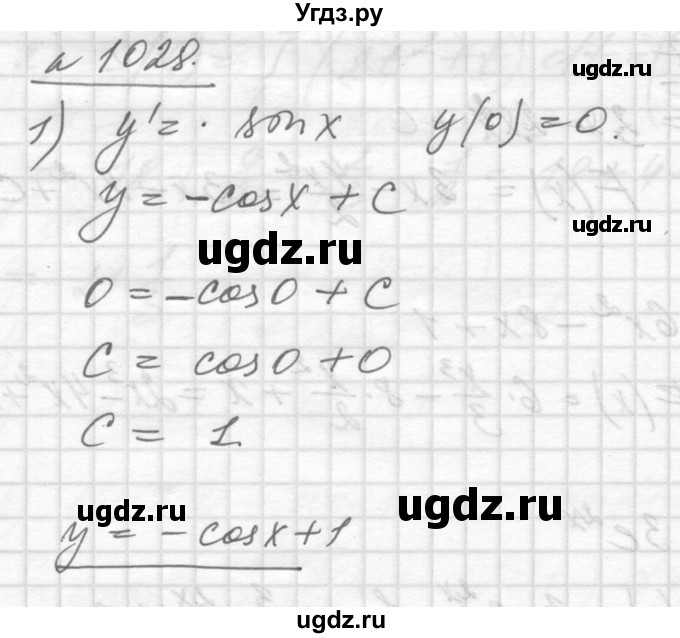 Угдз.ру
№ 1028.
ugdz.ru
1) y' = · sin x y(0) = 0.
y = -cos x + C
ugdz.ru
ugdz.ru
0 = -cos 0 + C
C = cos 0 + 0
C = 1
ugdz.ru
ugdz.ru
y = -cos x + 1
ugdz.ru